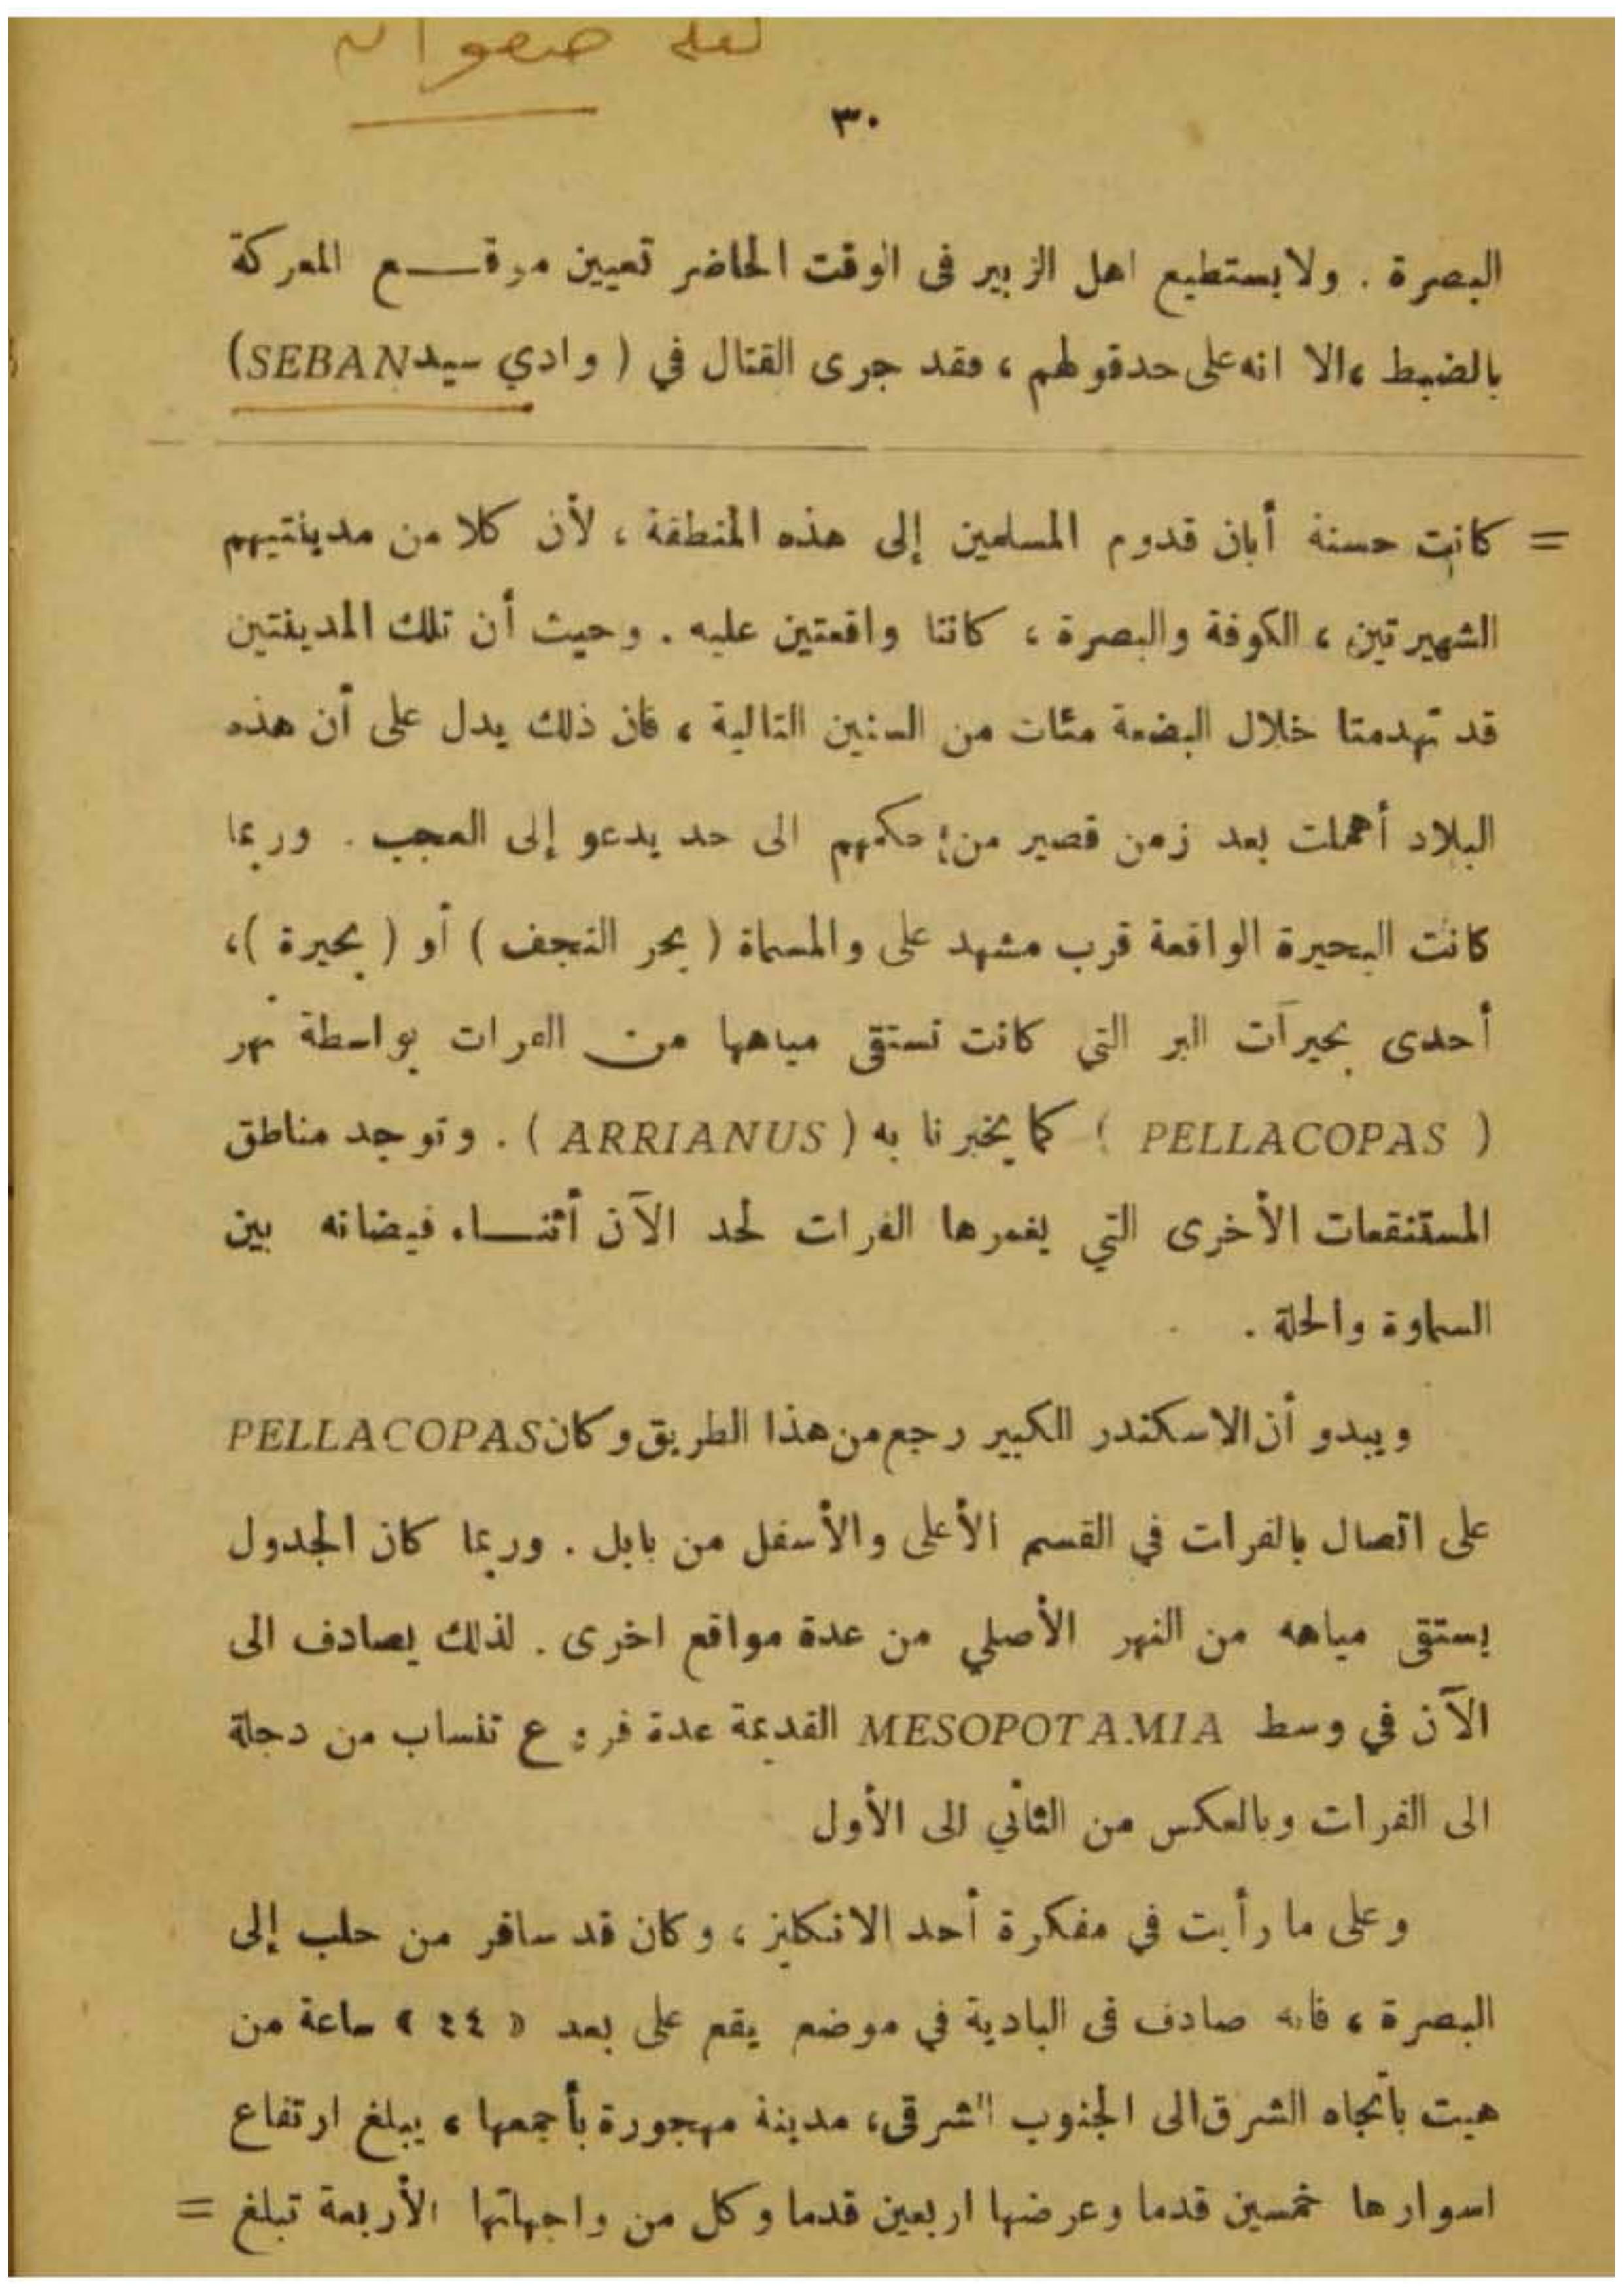 لعله صفوان
٣٠
البصرة . ولا يستطيع اهل الزبير فى الوقت الحاضر تعيين موقـــع المعركة
بالضبط ، الا انه على حد قولهم ، فقد جرى القتال في ( وادي سيد SEBAN)
= كانت حسنة أبان قدوم المسلمين إلى هذه المنطقة ، لأن كلا من مدينتيهم
الشهيرتين ، الكوفة والبصرة ، كانتا واقعتين عليه . وحيث أن تلك المدينتين
قد تهدمتا خلال البضعة مئات من السنين التالية ، فان ذلك يدل على أن هذه
البلاد أهملت بعد زمن قصير من حكمهم الى حد يدعو إلى العجب . وربما
كانت البحيرة الواقعة قرب مشهد على والمسماة ( بحر النجف ) أو ( بحيرة )،
أحدى بحيرات البر التي كانت تستقى مياهها من الفرات بواسطة نهر
( PELLACOPAS ) كما يخبرنا به ( ARRIANUS ) . وتوجد مناطق
المستنقعات الأخرى التي يغمرها الفرات لحد الآن أثنــاء فيضانه بين
السماوة والحلة .
ويبدو أن الاسكندر الكبير رجع من هذا الطريق وكان PELLACOPAS
على اتصال بالفرات في القسم الأعلى والأسفل من بابل . وربما كان الجدول
يستقى مياهه من النهر الأصلي من عدة مواقع اخرى . لذلك يصادف الى
الآن في وسط MESOPOTAMIA القديمة عدة فروع تنساب من دجلة
الى الفرات وبالعكس من الثاني الى الأول
وعلى ما رأيت في مفكرة أحد الانكليز ، وكان قد سافر من حلب إلى
البصرة ، فانه صادف فى البادية في موضع يقع على بعد « ٤٤ » ساعة من
هيت بأتجاه الشرق الى الجنوب الشرقى ، مدينة مهجورة بأجمعها ، يبلغ ارتفاع
اسوارها خمسين قدما وعرضها اربعين قدما وكل من واجهاتها الأربعة تبلغ =